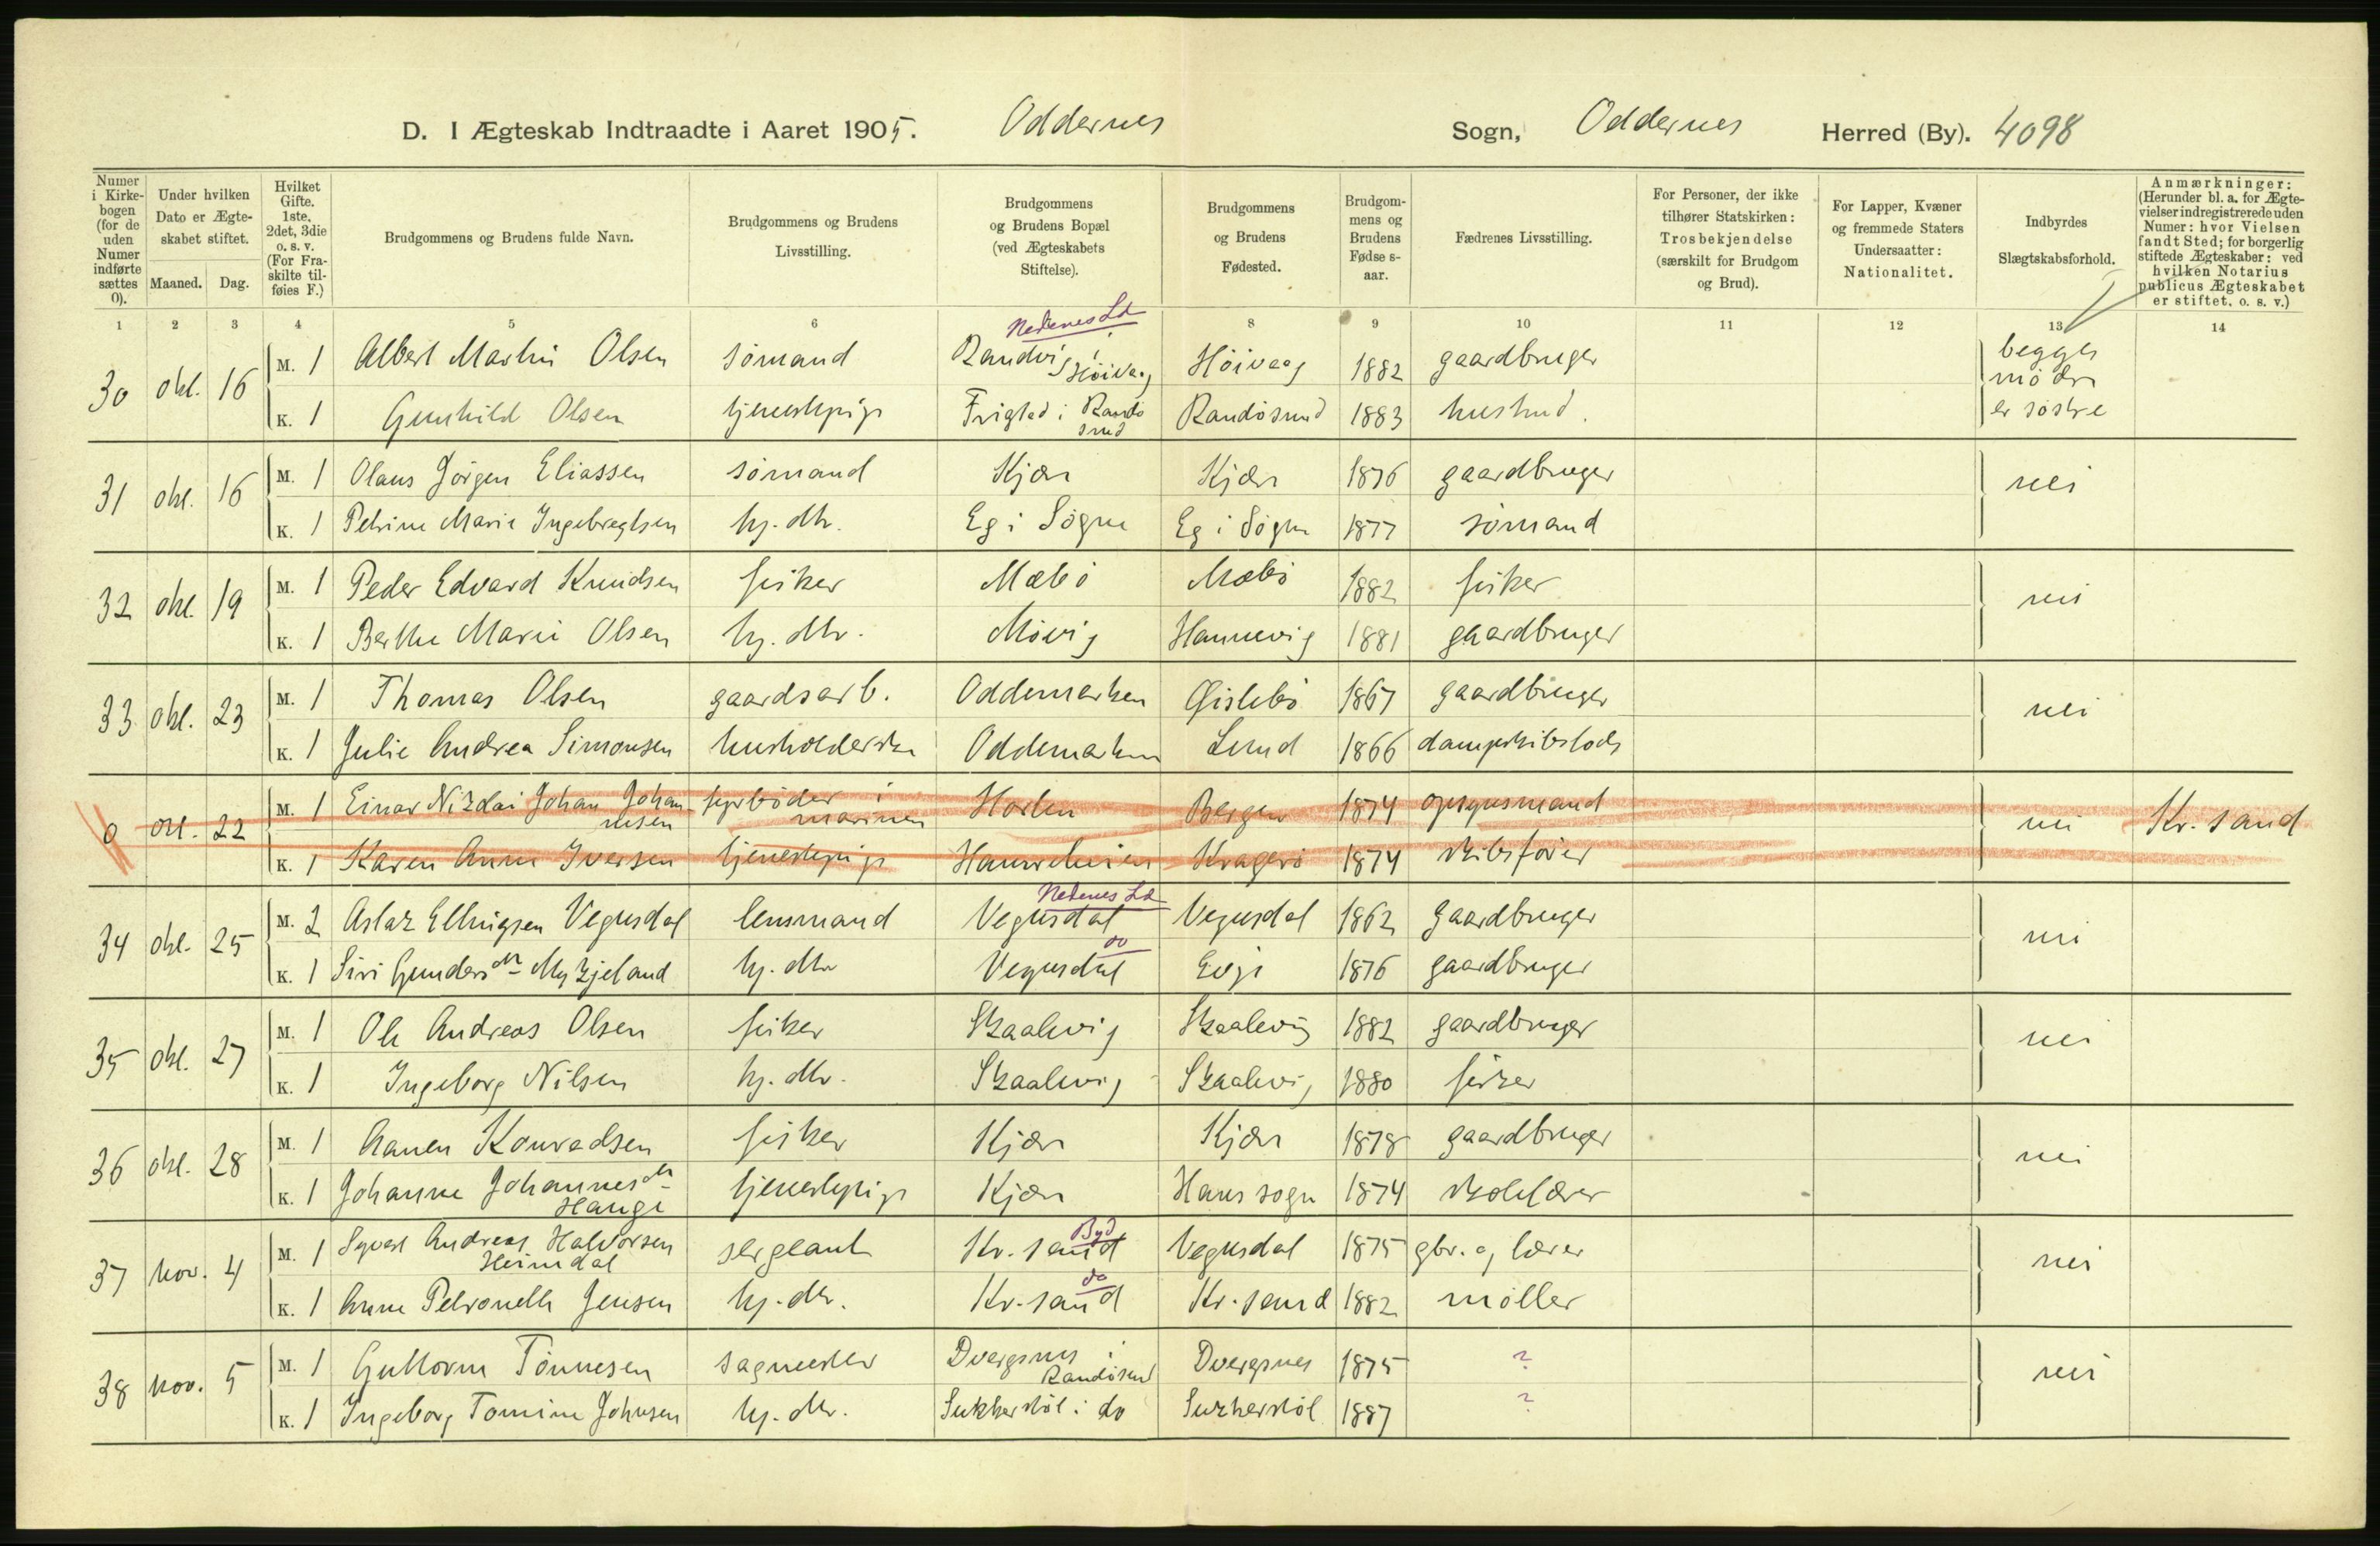 D. I Ægteskab Indtraadte i Aaret 1905. Oddernes Sogn, Oddernes Herred (By). 4098
Numer i Kirkebogen (for de uden Numer indførte sættes 0).
Under hvilken Dato er Ægteskabet stiftet.
Maaned. Dag.
Hvilket Gifte. 1ste, 2det, 3die o. s. v. (For Fraskilte tilføies F.)
Brudgommens og Brudens fulde Navn.
Brudgommens og Brudens Livsstilling.
Brudgommens og Brudens Bopæl (ved Ægteskabets Stiftelse).
Brudgommens og Brudens Fødested.
Brudgommens og Brudens Fødselsaar.
Fædrenes Livsstilling.
For Personer, der ikke tilhører Statskirken: Trosbekjendelse (særskilt for Brudgom og Brud).
For Lapper, Kvæner og fremmede Staters Undersaatter: Nationalitet.
Indbyrdes Slægtskabsforhold.
Anmærkninger: (Herunder bl. a. for Ægtevielser indregistrerede uden Numer: hvor Vielsen fandt Sted; for borgerlig stiftede Ægteskaber: ved hvilken Notarius publicus Ægteskabet er stiftet. o. s. v.)
1 2 3 4 5 6 7 8 9 10 11 12 13 14
Nedenes Ld
30 okt. 16 M. 1 Albert Martin Olsen sømand Randvig i Høivag Høivaag 1882 gaardbruger begges mødre er søstre
K. 1 Gunhild Olsen tjenestepige Frigsted i Randøsund Randøsund 1883 husmd.
31 okt. 16 M. 1 Olaus Jørgen Eliassen sømand Kjær Kjær 1876 gaardbruger nei
K. 1 Petrine Marie Ingebregtsen hj. dtr. Eg i Søgne Eg i Søgne 1877 sømand
32 okt. 19 M. 1 Peder Edvard Knudsen fisker Mæbø Mæbø 1882 fisker nei
K. 1 Berthe Marie Olsen hj. dtr. Møvig Hannevig 1881 gaardbruger
33 okt. 23 M. 1 Thomas Olsen gaardsarb. Oddemarken Øislebø 1867 gaardbruger nei
K. 1 Julie Andrea Simonsen husholderske Oddemarken Lund 1866 dampskibslods
0 okt. 22 M. 1 Einar Nikolai Johan Johannesen fyrbøder i marinen Horten Bergen 1874 opsynsmand nei Kr. sand
K. 1 Karen Anne Iversen tjenestepige Kragerø 1874 skibsfører
Nedenes Ld
34 okt. 25 M. 2 Aslak Ellingsen Vegusdal lensmand Vegusdal Vegusdal 1862 gaardbruger nei
do
K. 1 Siri Gundersdtr Mykjeland hj. dtr Vegusdal Evje 1876 gaardbruger
35 okt. 27 M. 1 Ole Andreas Olsen fisker Skaalevig Skaalevig 1882 gaardbruger nei
K. 1 Ingeborg Nilsen hj. dtr. Skaalevig Skaalevig 1880 fisker
36 okt. 28 M. 1 Aanen Konradsen fisker Kjær Kjær 1878 gaardbruger nei
K. 1 Johanne Johannesdtr Hauge tjenestepige Kjær Haus sogn 1874 skolelærer
Byd
37 nov. 4 M. 1 Syvert Andreas Halvorsen Heimdal sergeant Kr. sand Vegusdal 1875 gbr. og lærer nei
do
K. 1 Anne Petronelle Jensen hj. dtr. Kr. sand Kr. sand 1882 møller
38 nov. 5 M. 1 Guttorm Tønnesen sagmester Dvergsnes i Randøsund Dvergsnes 1875 ? nei
K. 1 Ingeborg Tomine Johnsen hj. dtr. Sukkerstøl i do Sukkerstøl 1887 ?